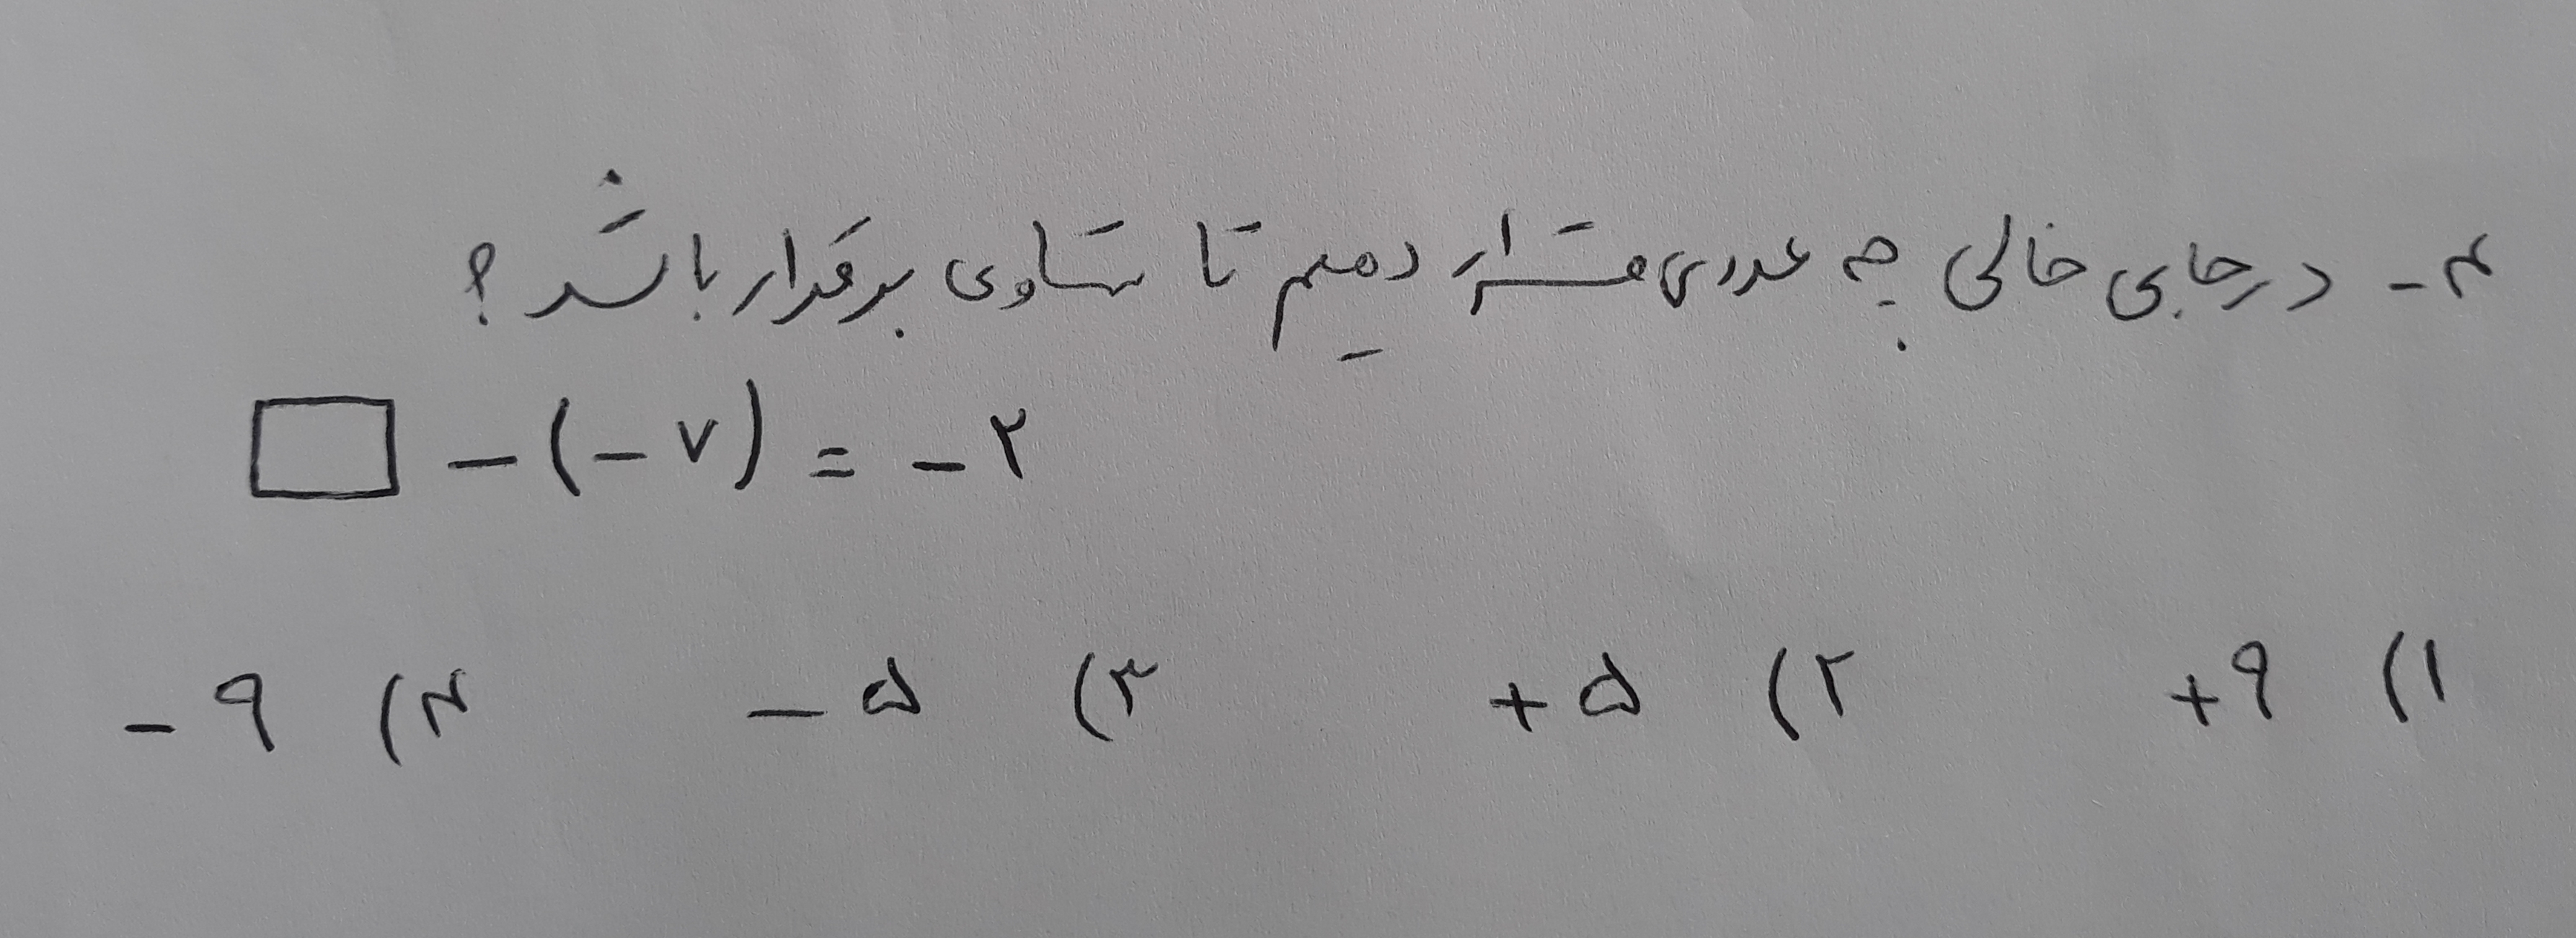 ۴- در جای خالی چه عددی قرار دهیم تا تساوی برقرار باشد؟
□ - (-۷) = -۲
۱) +۹ ۲) +۵ ۳) -۵ ۴) -۹